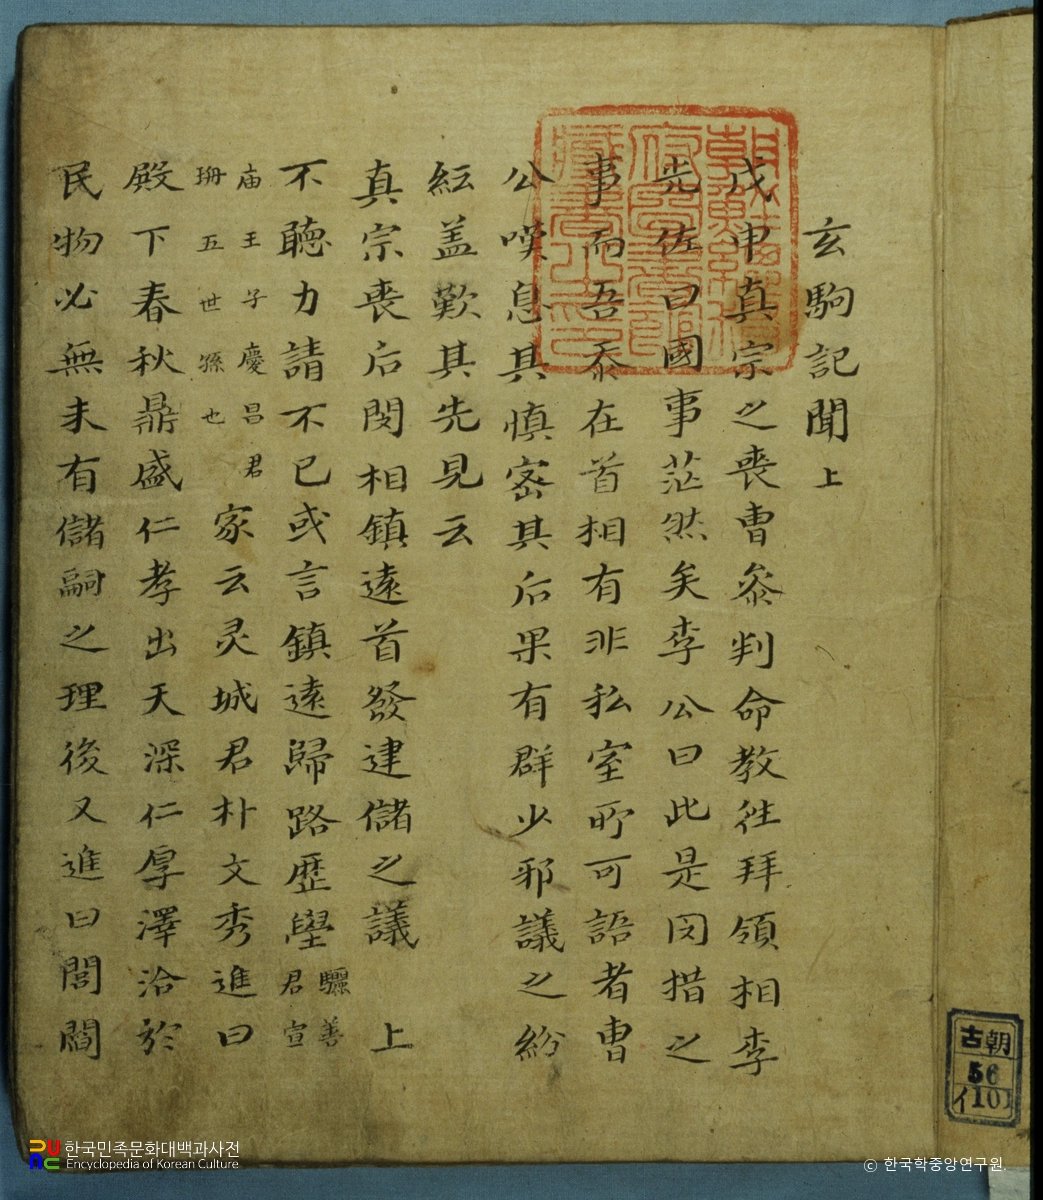 玄駒記聞上
戊申真宗之喪曺叅判命教往拜領相李
先佐曰國事茫然矣李公曰此是罔措之
事而吾忝在首相有非私室所可語者曺
公嘆息其慎密其后果有群少邪議之紛
紜盖歎其先見云
真宗喪后閔相鎮遠首發建儲之議 上
不聽力請不已或言鎮遠歸路歷壆驪善君宣
庙王子慶昌君珊五世孫也家云灵城君朴文秀進曰
殿下春秋鼎盛仁孝出天深仁厚澤洽於
民物必無未有儲嗣之理後又進曰閭閻
朝鮮總督府圖書館藏書之印
古朝
56
イ101
한국민족문화대백과사전
Encyclopedia of Korean Culture
ⓒ 한국학중앙연구원